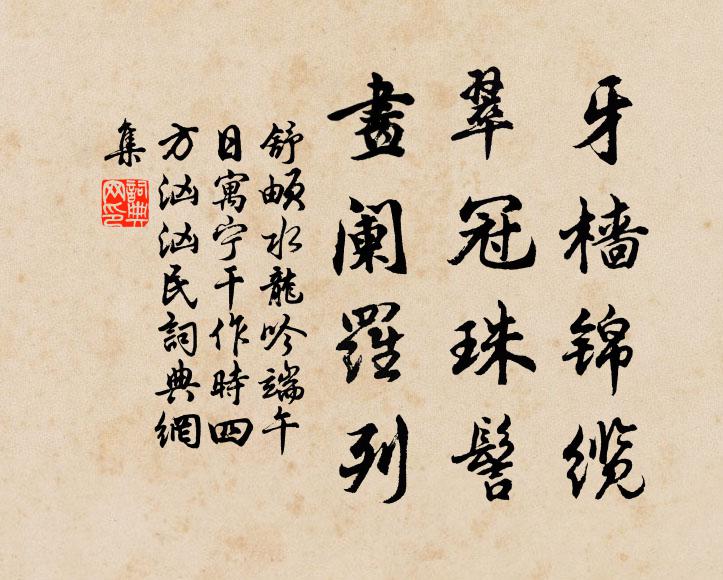 牙檣锦缆
翠冠珠髻
畫阑羅列
舒頔水龍吟端午
日寓宁干作時四
方汹汹民詞典網
集
詞典
网印